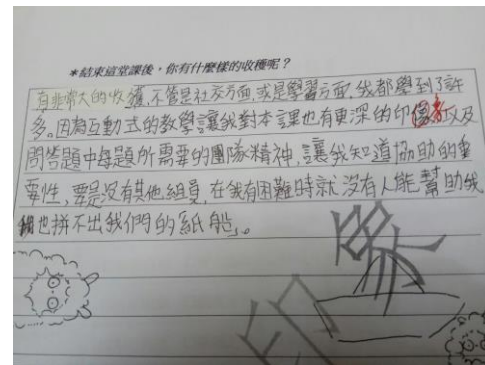 *結束這堂課後，你有什麼樣的收穫呢？
有非常大的收穫，不管是社交方面，或是學習方面，我都學到了許
多。因為互動式的教學讓我對本課也有更深的印像，以及
問答題中每題所需要的團隊精神，讓我知道協助的重
要性，要是沒有其他組員，在我有困難時就沒有人能幫助我
也拼不出我們的紙船。
印象